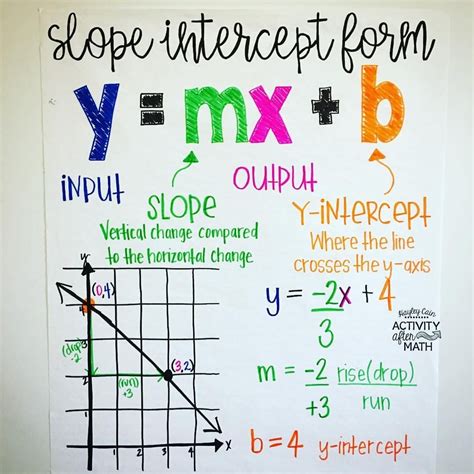 slope intercept form
y = mx + b
INPUT
OUTPUT
SLOPE
Vertical change compared
to the horizontal change
Y-INTERCEPT
Where the line
crosses the y-axis
y
(0,4)
4
3
(drop)
-2
2
1
(3,2)
(run)
+3
1 2 3 4
x
y = -2x + 4
3
Kayley Cain
ACTIVITY
after
MATH
m = -2 rise(drop)
+3 run
b = 4 y-intercept